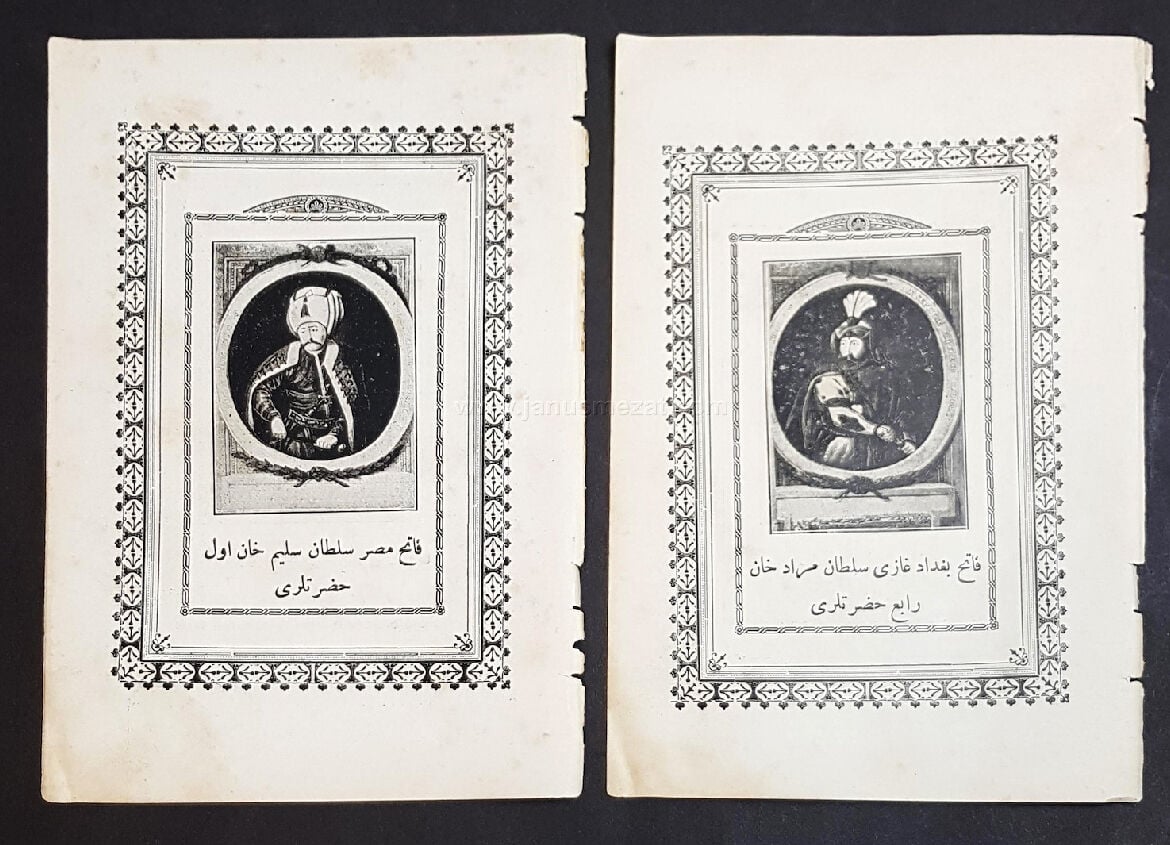 فاتح مصر سلطان سليم خان اول
حضرتلری
فاتح بغداد غازی سلطان مراد خان
رابع حضرتلری
www.janusmezat.com